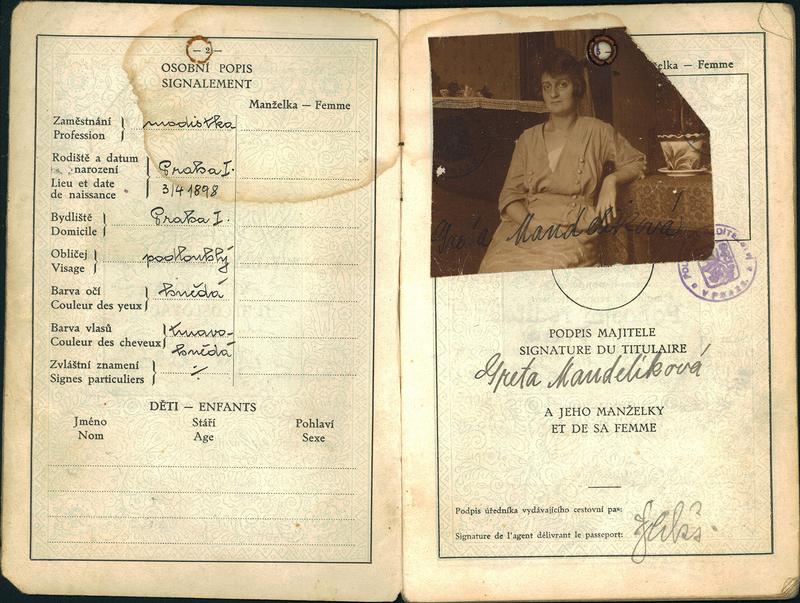 — 2 —
OSOBNÍ POPIS
SIGNALEMENT
Manželka — Femme
Zaměstnání
Profession
modistka
Rodiště a datum
narození
Praha I.
Lieu et date
de naissance
3/4 1898
Bydliště
Domicile
Praha I.
Obličej
Visage
podlouhlý
Barva očí
Couleur des yeux
hnědá
Barva vlasů
Couleur des cheveux
tmavo-
hnědá
Zvláštní znamení
Signes particuliers
DĚTI — ENFANTS
Jméno Stáří Pohlaví
Nom Age Sexe
elka — Femme
Greta Mandelíková
V PRAZE
PODPIS MAJITELE
SIGNATURE DU TITULAIRE
Greta Mandelíková
A JEHO MANŽELKY
ET DE SA FEMME
Podpis úředníka vydávajícího cestovní pas:
Signature de l'agent délivrant le passeport: